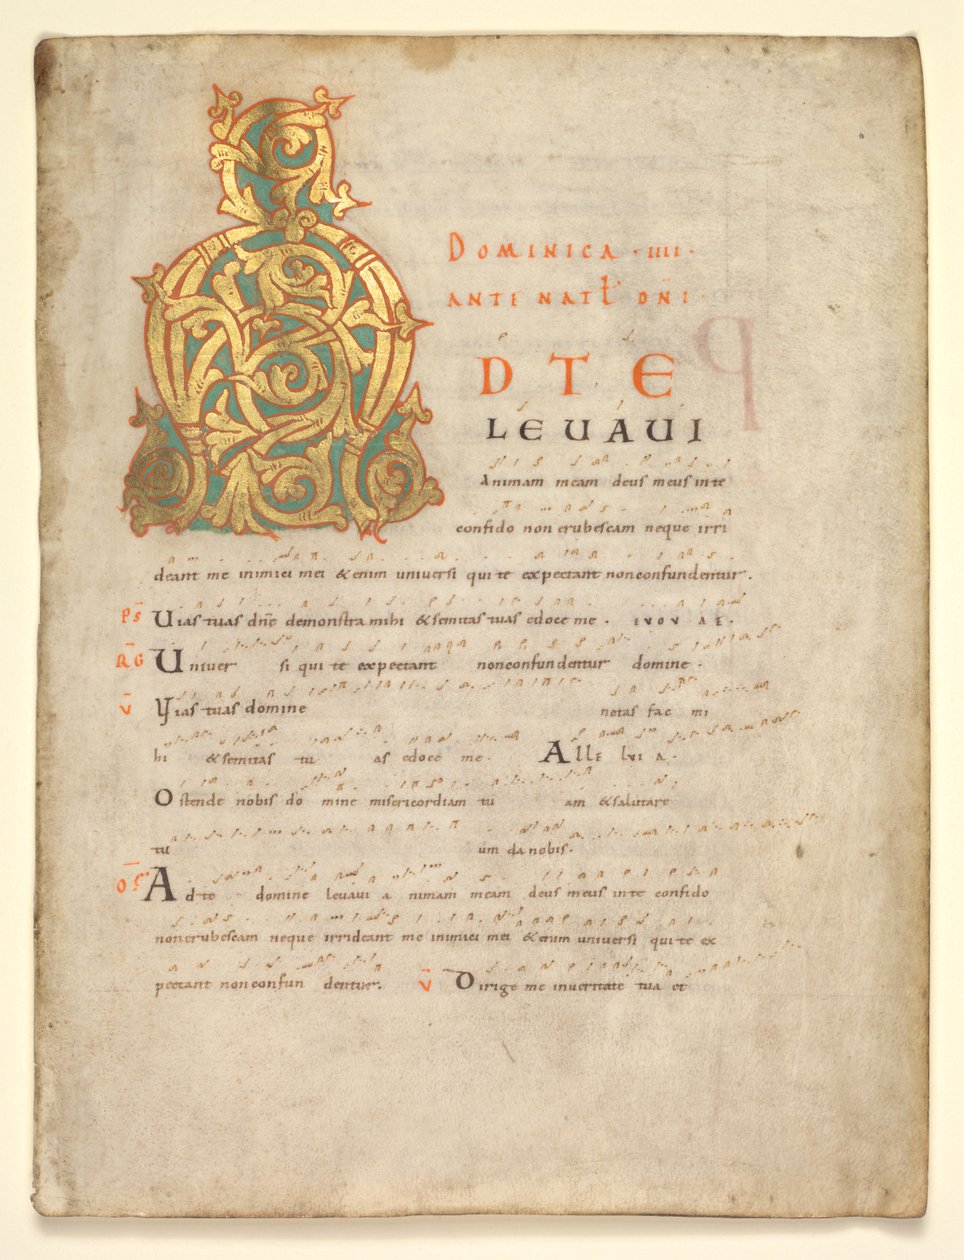 A
DOMINICA · IIII ·
ANTE NATƗ DN̄I ·
D TE
LEUAUI
Animam meam deus meus inte
confido non erubescam neque irri
deant me inimici mei &enim uniuersi qui te expectant nonconfundentur.
PS̄ Uias tuas dn̄e demonstra mihi &semitas tuas edoce me . EVOVAE .
R̄G Uniuer si qui te expectant nonconfundentur domine .
V̄ Vias tuas domine notas fac mi
hi &semitas tu as edoce me . Alle lui a .
Ostende nobis do mine misericordiam tu am &salutare
tu um da nobis .
OF̄ Ad te domine leuaui a nimam meam deus meus inte confido
nonerubescam neque irrideant me inimici mei &enim uniuersi qui te ex
pectant nonconfun dentur. V̄ Dirige me inueritate tua et